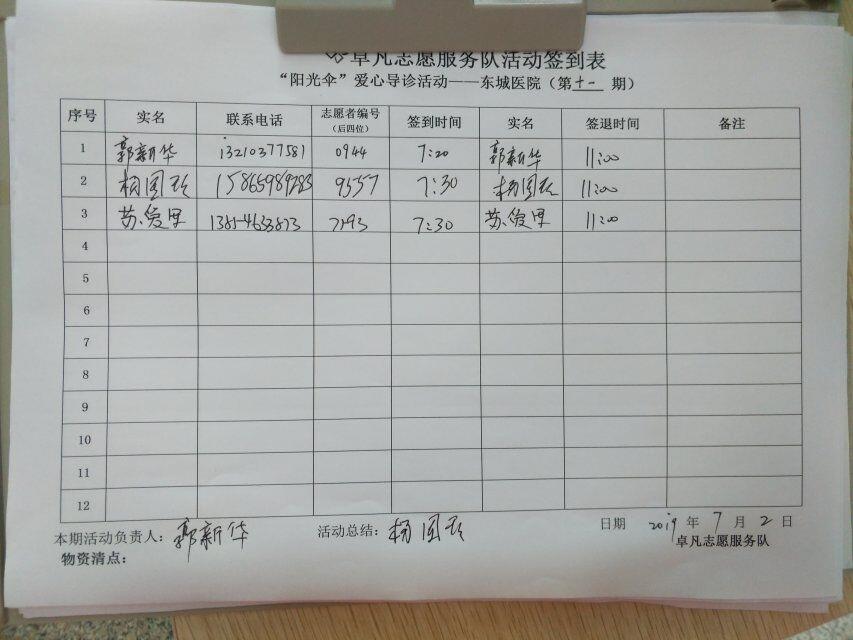 卓凡志愿服务队活动签到表
“阳光伞”爱心导诊活动——东城医院（第十一期）
序号 实名 联系电话 志愿者编号（后四位） 签到时间 实名 签退时间 备注
1 郭新华 13210377581 0944 7:20 郭新华 11:00
2 杨国 9557 7:30 杨国 11:00
3 苏爱 7193 7:30 苏爱 11:00
4
5
6
7
8
9
10
11
12
本期活动负责人：郭新华 活动总结：杨国 日期 2019年7月2日
物资清点： 卓凡志愿服务队